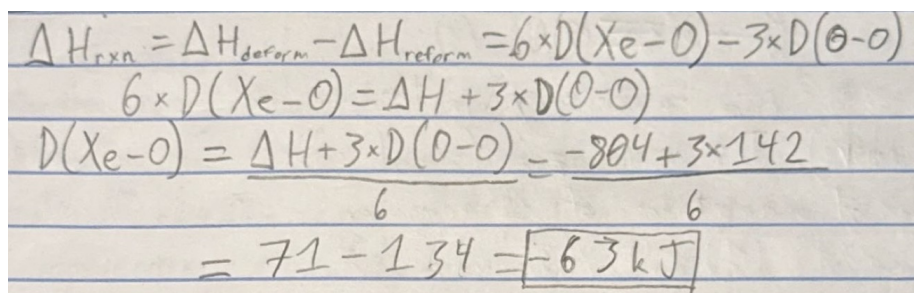 ΔH_rxn = ΔH_deform - ΔH_reform = 6×D(Xe-O) - 3×D(O-O)
6×D(Xe-O) = ΔH + 3×D(O-O)
D(Xe-O) = (ΔH + 3×D(O-O))/6 = (-804 + 3×142)/6
= 71 - 134 = -63 kJ